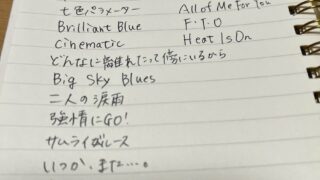 七色パラメーター
Brilliant Blue
Cinematic
どんなに離れたって傍にいるから
Big Sky Blues
二人の涙雨
強情にGO!
サムライブルース
いつか、また…。
All of Me For You
F・T・O
Heat Is On